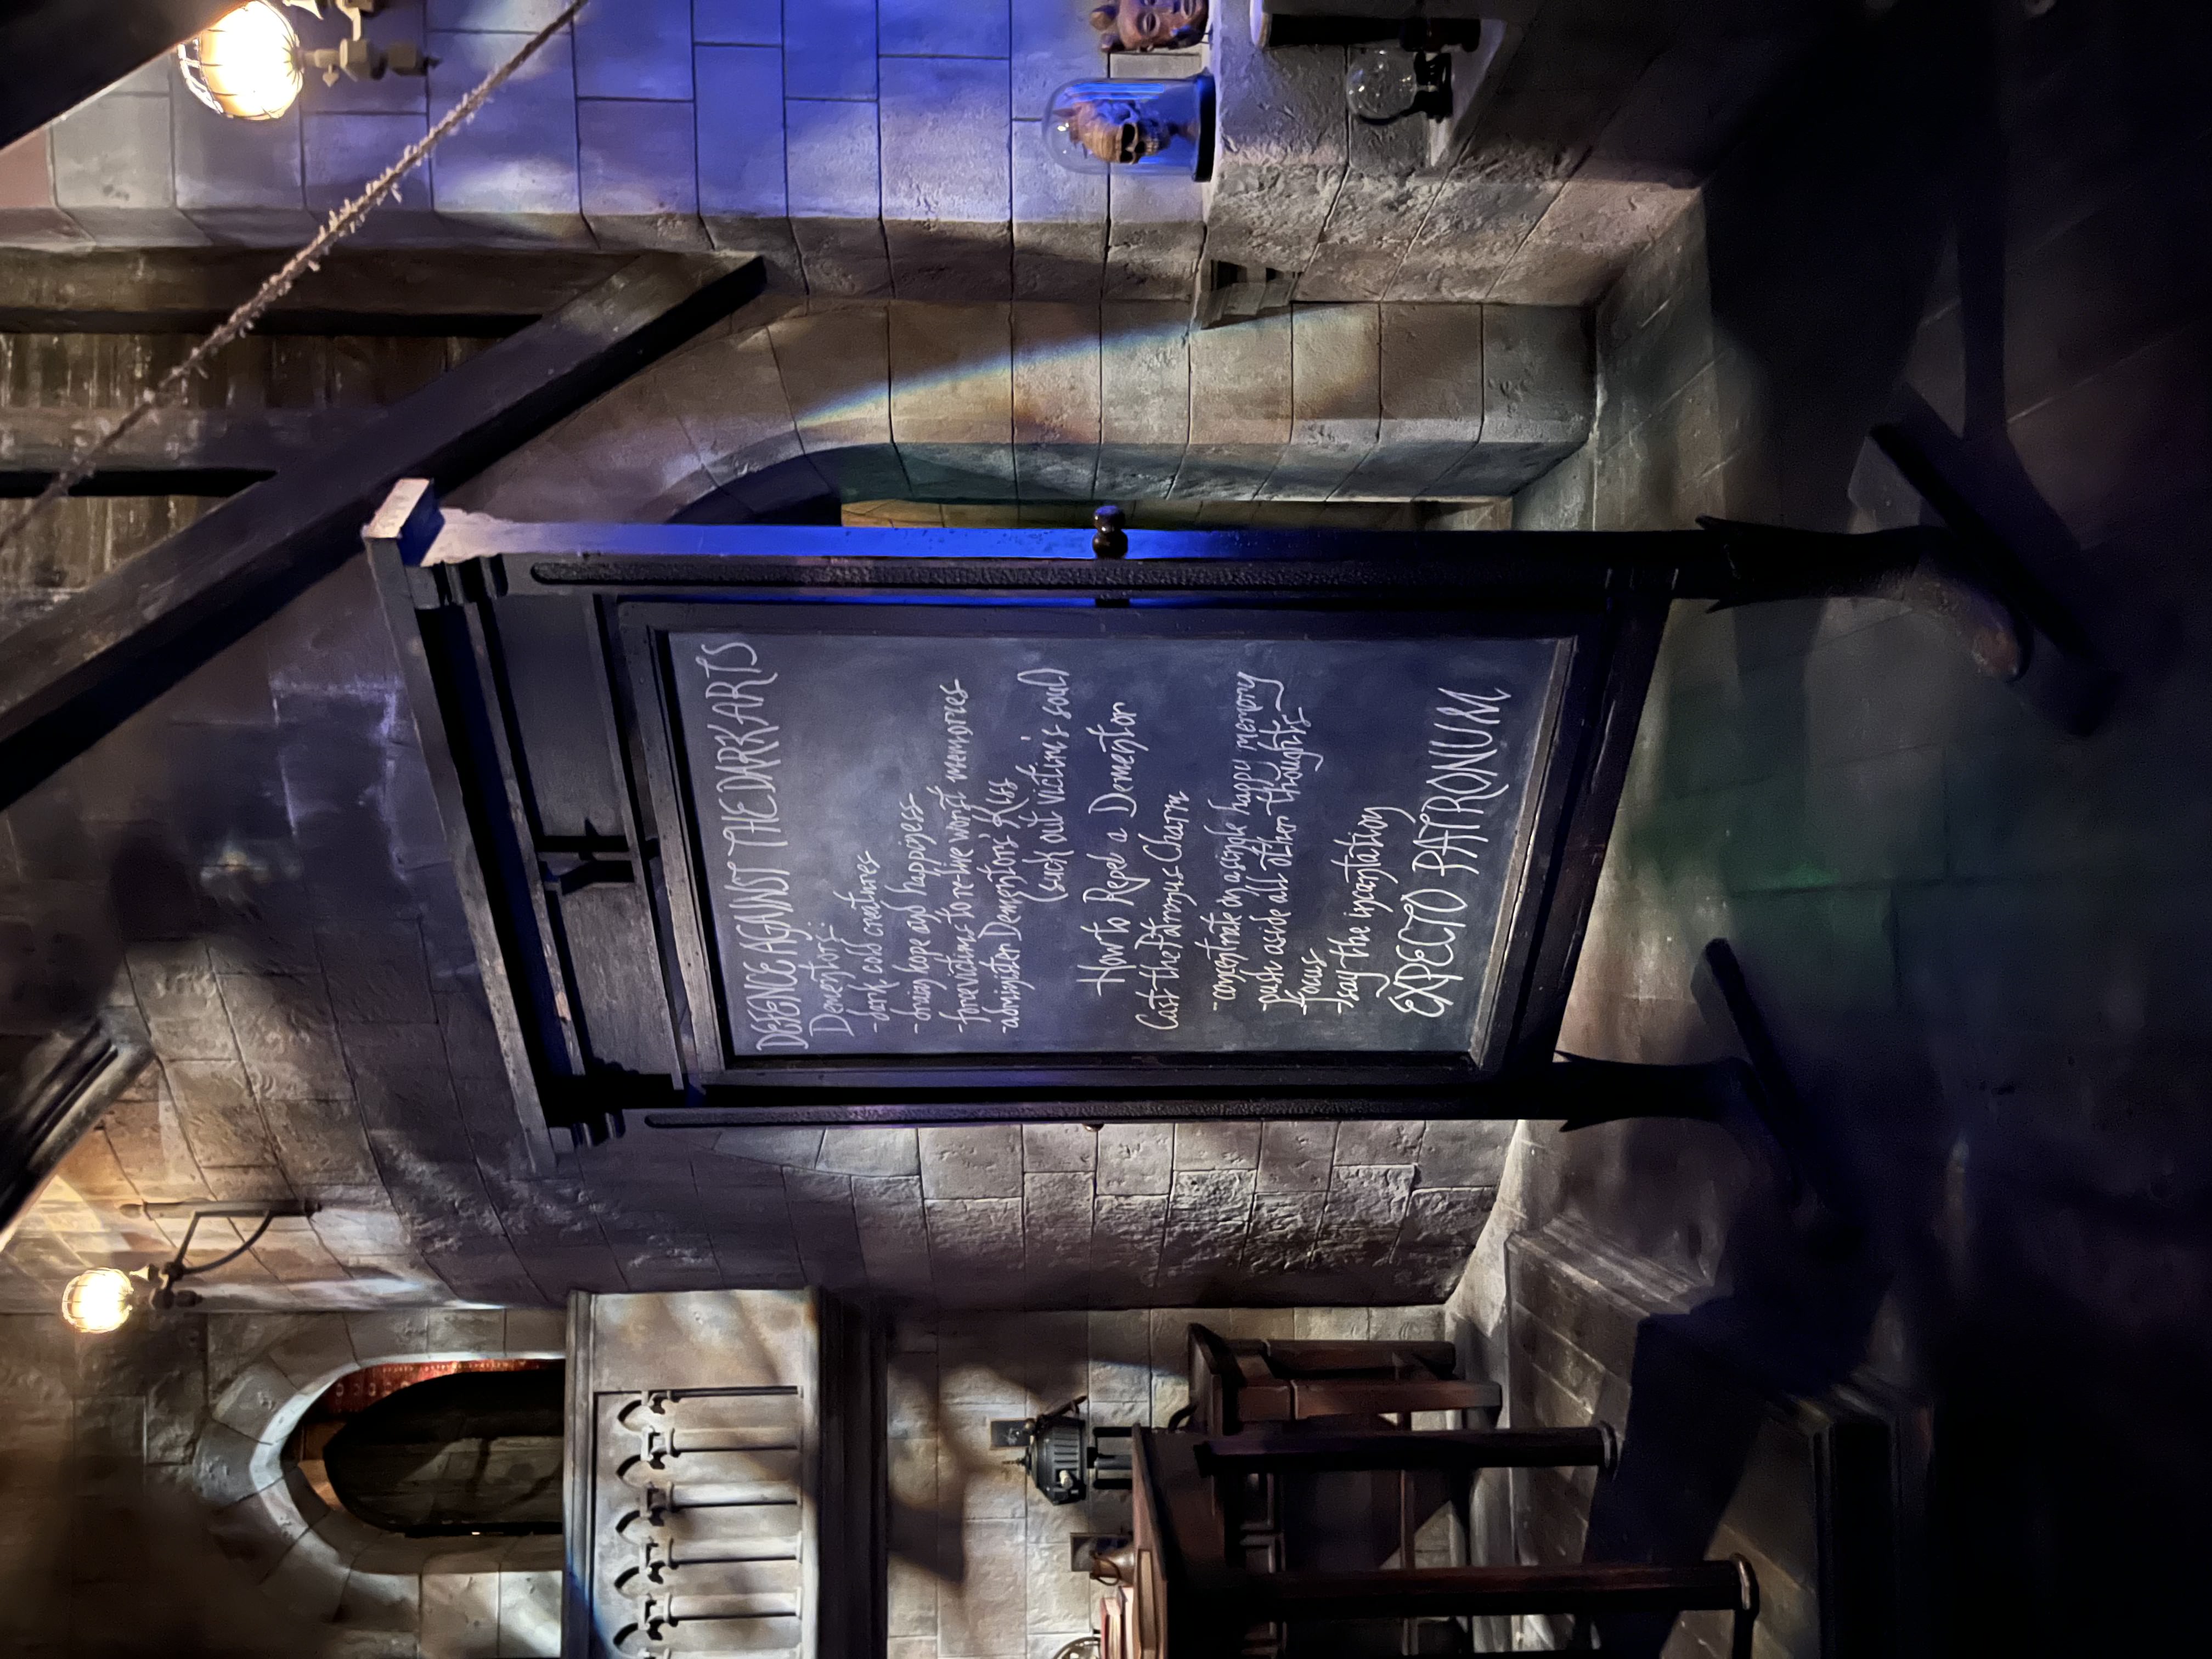 DEFENCE AGAINST THE DARK ARTS
Dementors:
-dark, cold creatures
-drain hope and happiness
-force victims to re-live worst memories
-administer Dementors' Kiss
(suck out victim's soul)
How to Repel a Dementor
Cast the Patronus Charm
-concentrate on a single happy memory
-push aside all other thoughts
-focus
-say the incantation
EXPECTO PATRONUM